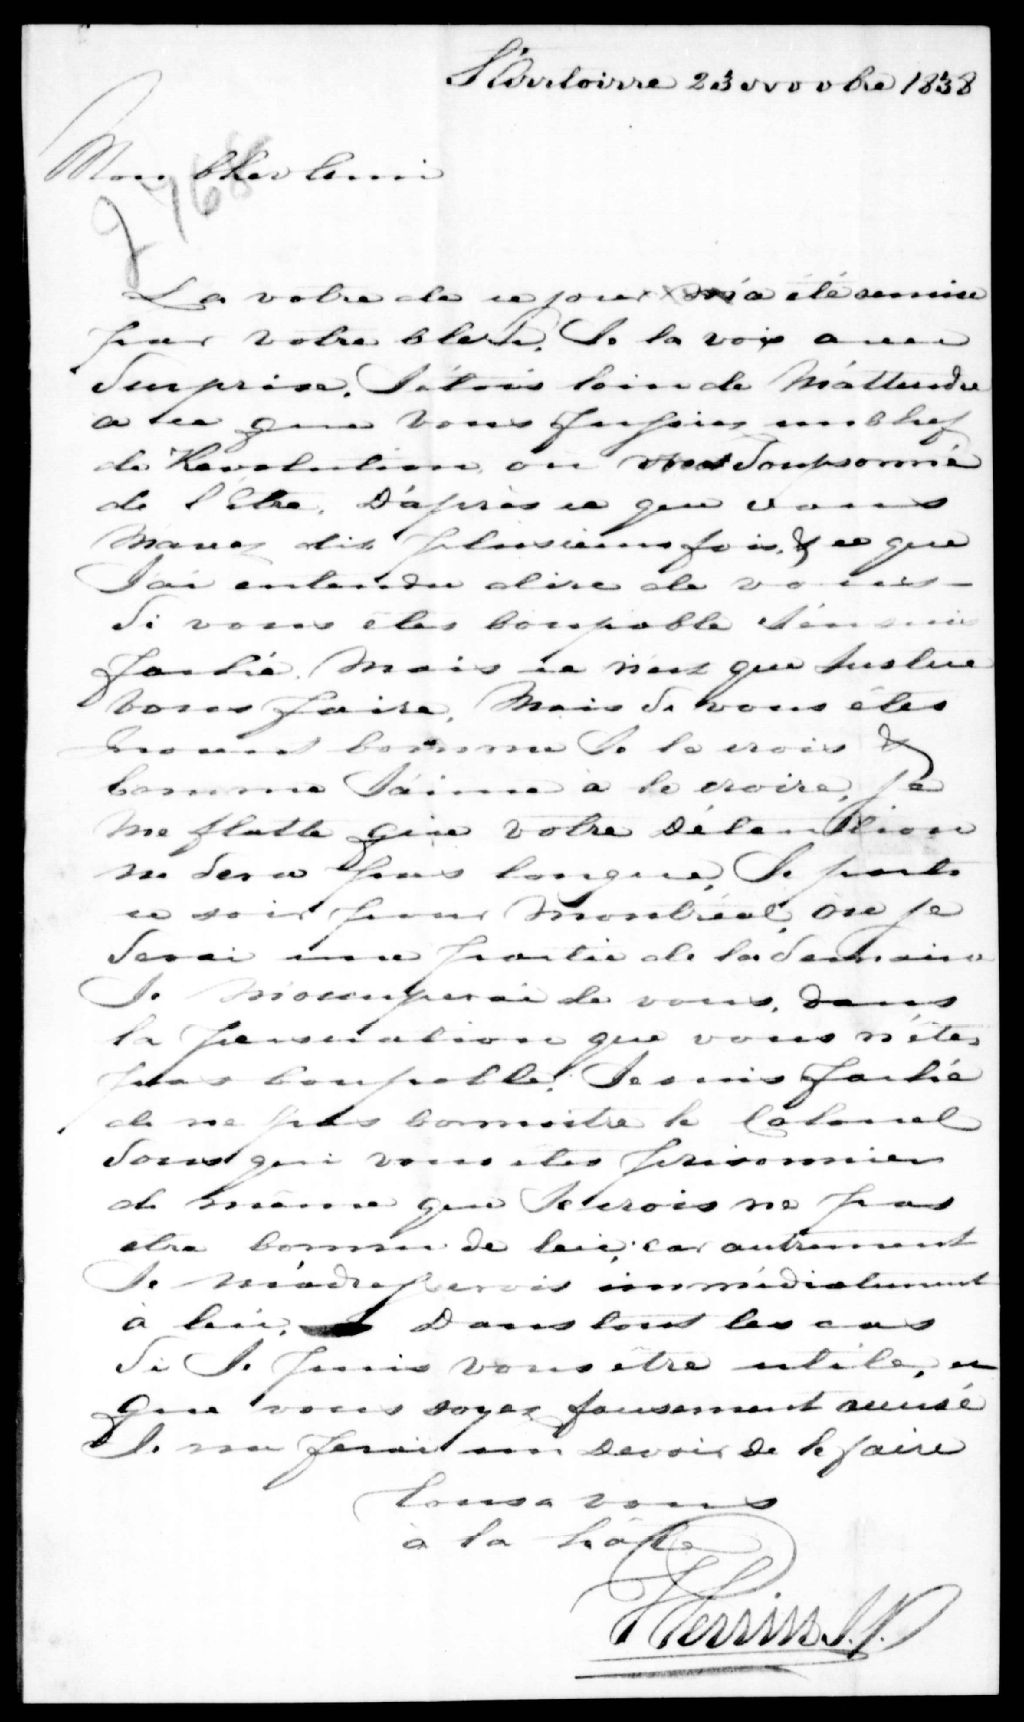 St Antoine 23 novbre 1838
Mon Cher Ami
2768
La votre de ce jour m'a été remise
par votre Clerk. Je la vois avec
Surprise. J'étois loin de M'attendre
a ce que Vous fussiez un Chef
de Revolution ou Soupsonné
de l'Etre. D'après ce que vous
M'avez dit plusieurs fois, & ce que
J'ai entendu dire de vous -
Si vous êtes Coupable J'en suis
faché. Mais ce n'est que Justice
Vous faire. Mais Si vous êtes
Innocent Comme Je le crois &
Comme J'aime à le croire, je
Me flatte que votre Détention
ne Sera pas longue. Je parts
ce soir pour Montréal, où je
Serai une partie de la Semaine
Je M'occuperai de vous, dans
la persuation que vous n'êtes
pas Coupable. Je suis faché
de ne pas Connoitre le Colonel
Sous qui vous etes prisonnier
de même que Je crois ne pas
etre Connu de lui, car autrement
Je M'adresserois immédiatement
à lui. Dans tous les cas
Si Je puis vous être utile, en
que vous soyez faussement accusé
Je me ferai un Devoir de le faire
Tous a vous
à la hâte
J.P.